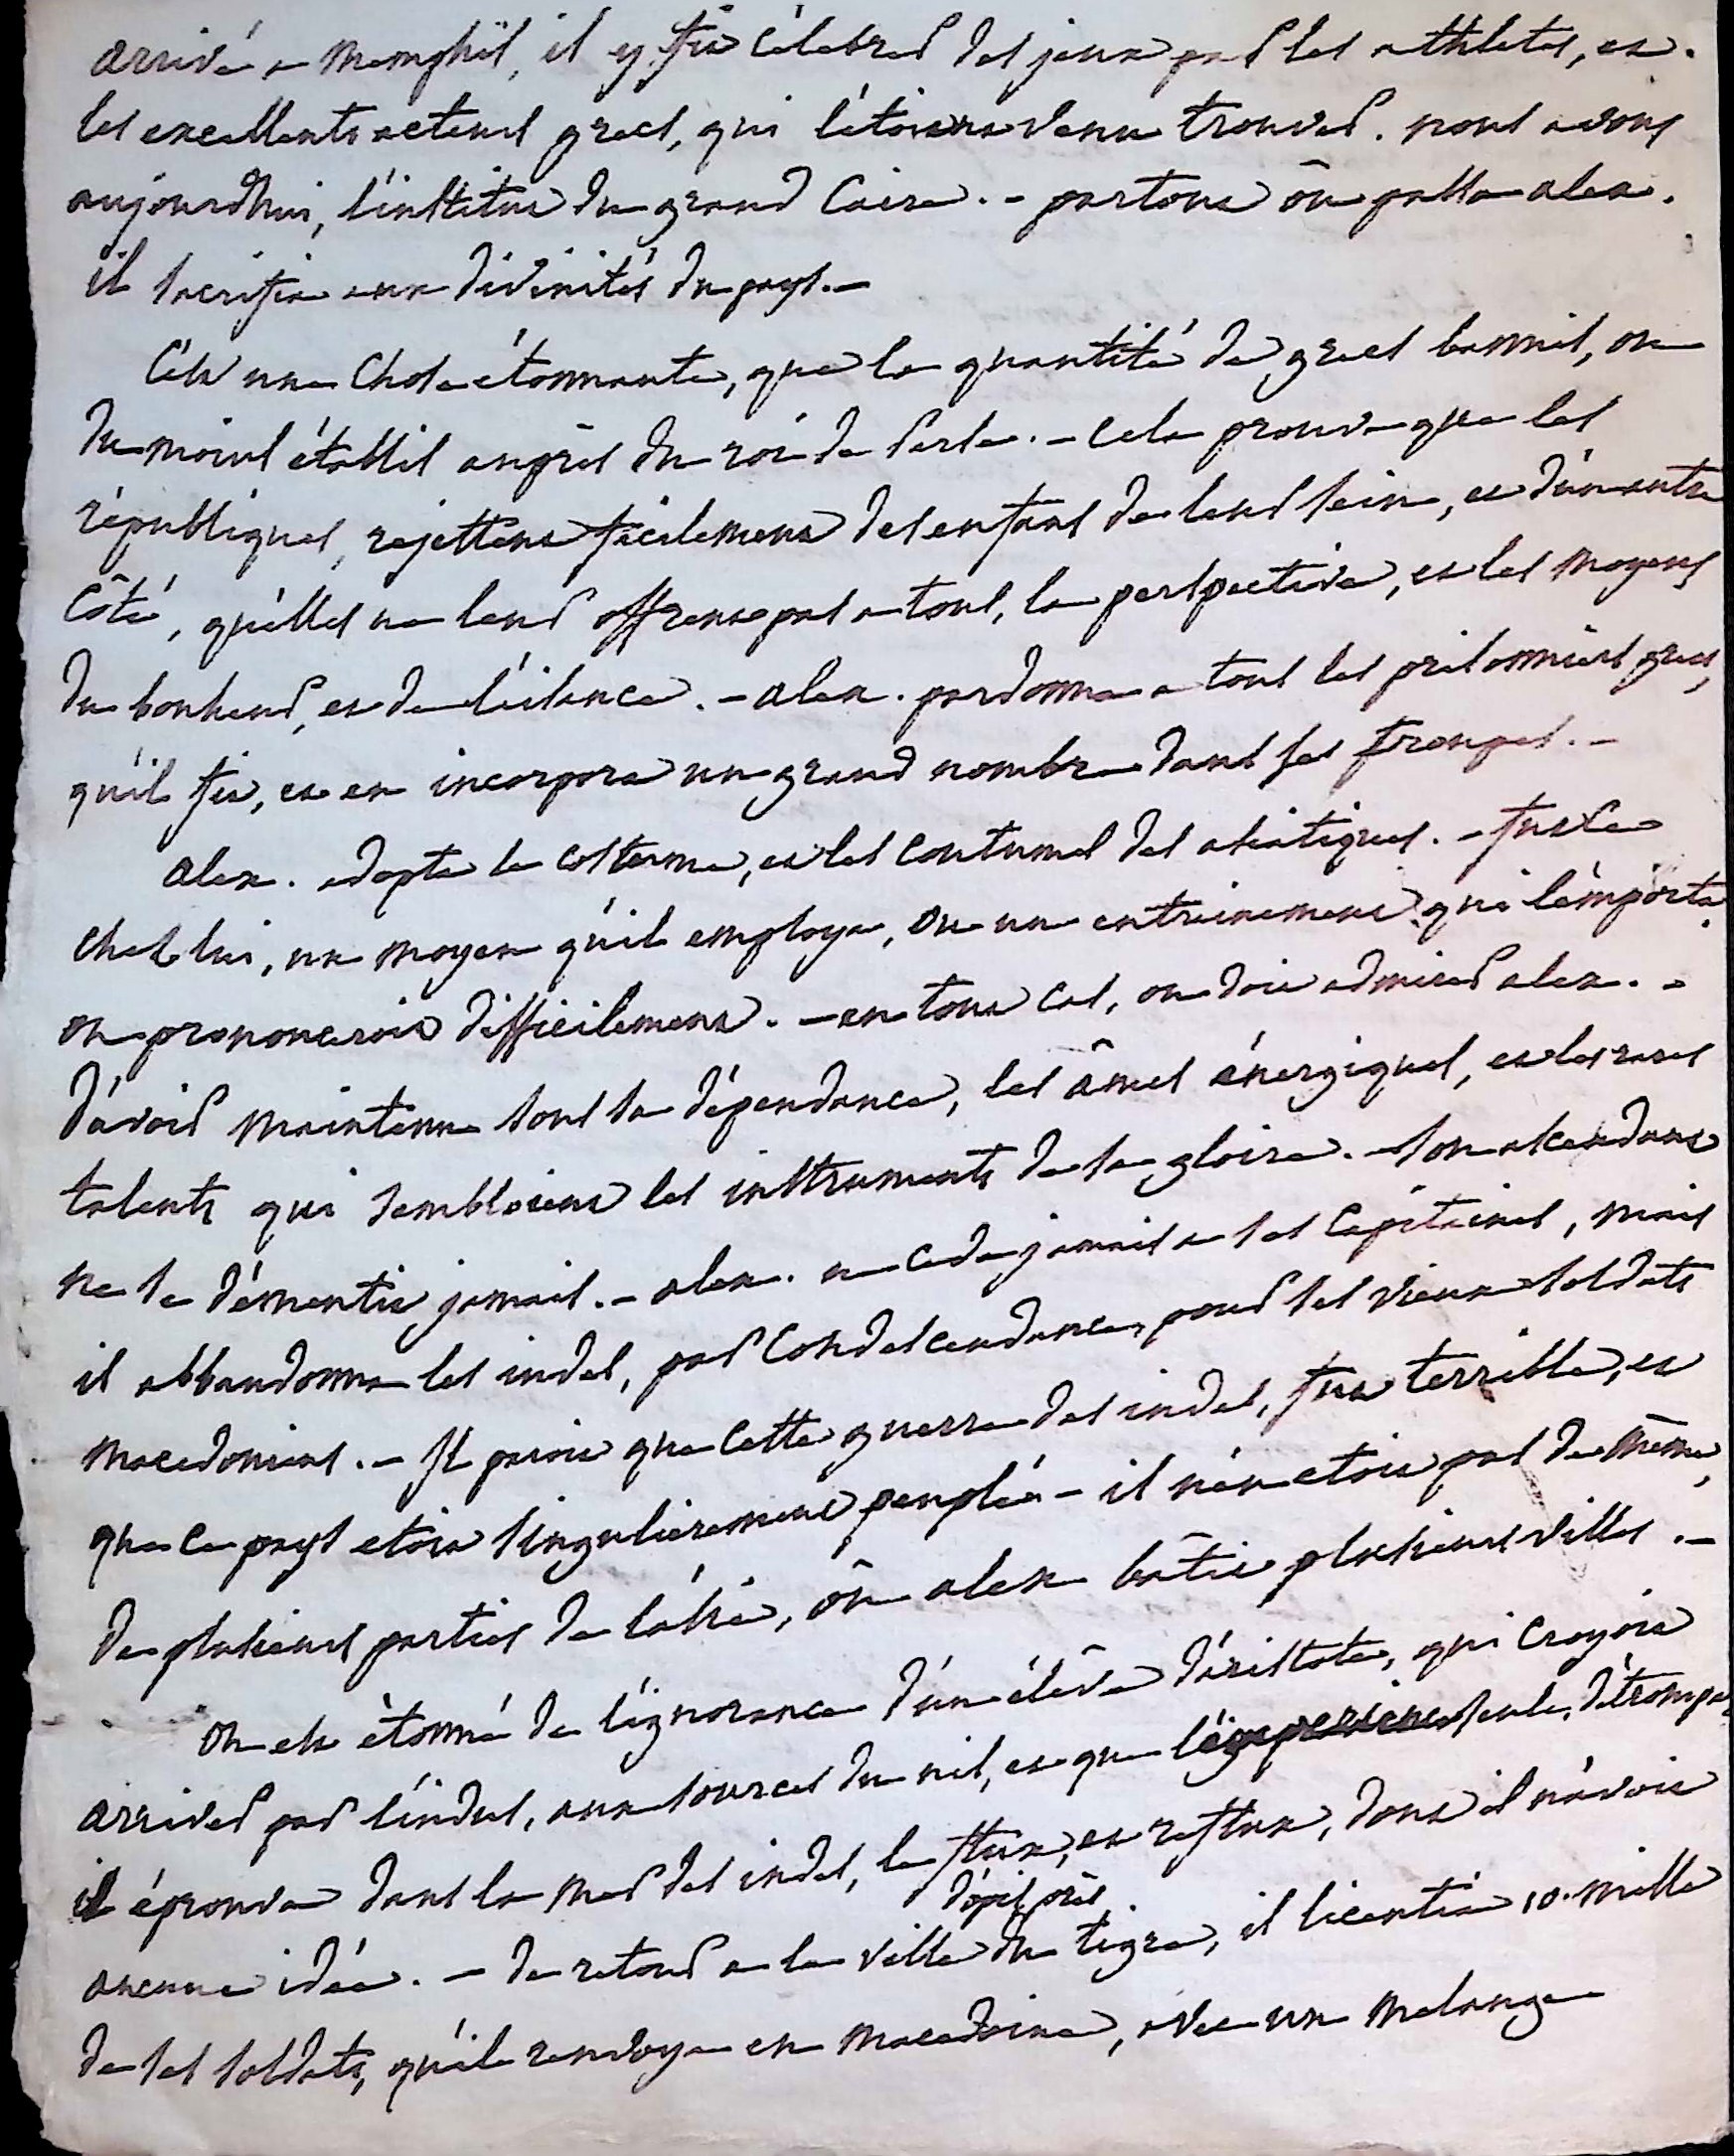 arrivé a Memphis, il y fit célébrer des jeux par les athletes, et
les excellents acteurs grecs, qui l'étoient venu trouver. nous avons
aujourdhui, l'institut du grand Caire. - partout où passa alex.
il sacrifia aux divinités du pays. -
C'est une chose étonnante, que la quantité de grecs bannis, ou
du moins établis auprès du roi de Perse. - cela prouve que les
républiques, rejettent facilement des enfans de leur sein, et d'un autre
côté, qu'elles ne leur offrent pas a tous, la perspective, et les moyens
du bonheur, et de l'aisance. - alex. pardonna a tous les prisonniers grecs,
qu'il fit, et en incorpora un grand nombre dans ses troupes. -
alex. adopta le costume, et les coutumes des asiatiques. - fut ce
chez lui, un moyen qu'il employa, ou un entrainement qui l'emporta,
on prononceroit difficilement. - en tout cas, on doit admirer alex. -
d'avoir maintenu sous sa dépendance, les âmes énergiques, et les rares
talents qui sembloient les instruments de sa gloire. - son ascendant
ne se démentit jamais. - alex. ne ceda jamais a ses capitaines, mais
il abbandonna les indes, par condescendance, pour ses vieux soldats
macedoniens. - Il paroit que cette guerre des indes, fut terrible, et
que ce pays etoit singulierement peuplé - il n'en etoit pas de même,
de plusieurs parties de l'asie, où alex bâtit plusieurs villes. -
on est étonné de l'ignorance d'un élève d'aristote, qui croyoit
arriver par l'indus, aux sources du nil, et que l'experience seule, détrompa,
il éprouva dans la mer des indes, le flux, et reflux, dont il n'avoit
aucune idée. - de retour a la ville d'opis près du tigre, il licentia 10. mille
de ses soldats, qu'il renvoya en macedoine, avec un melange